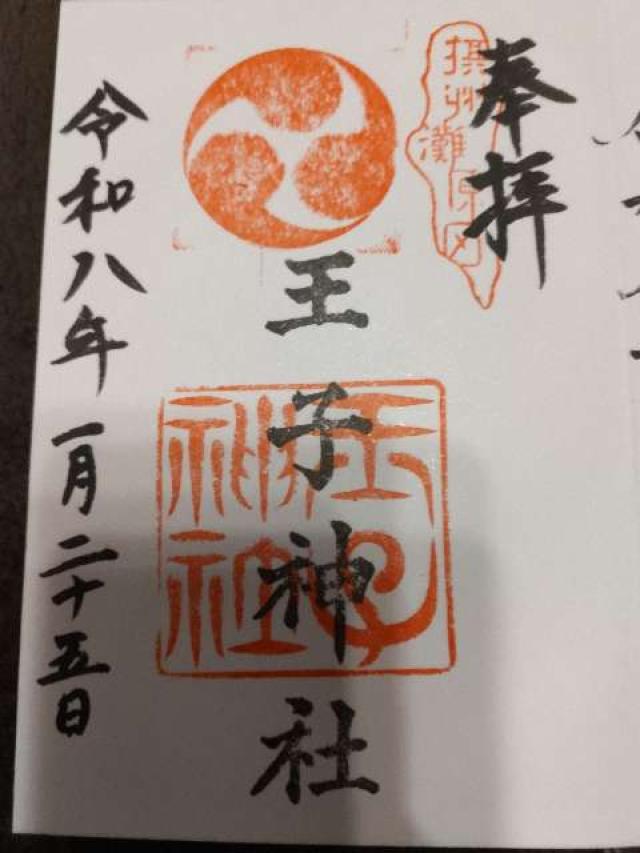 奉拝
摂州灘原田
王子神社
王子神社
令和八年一月二十五日